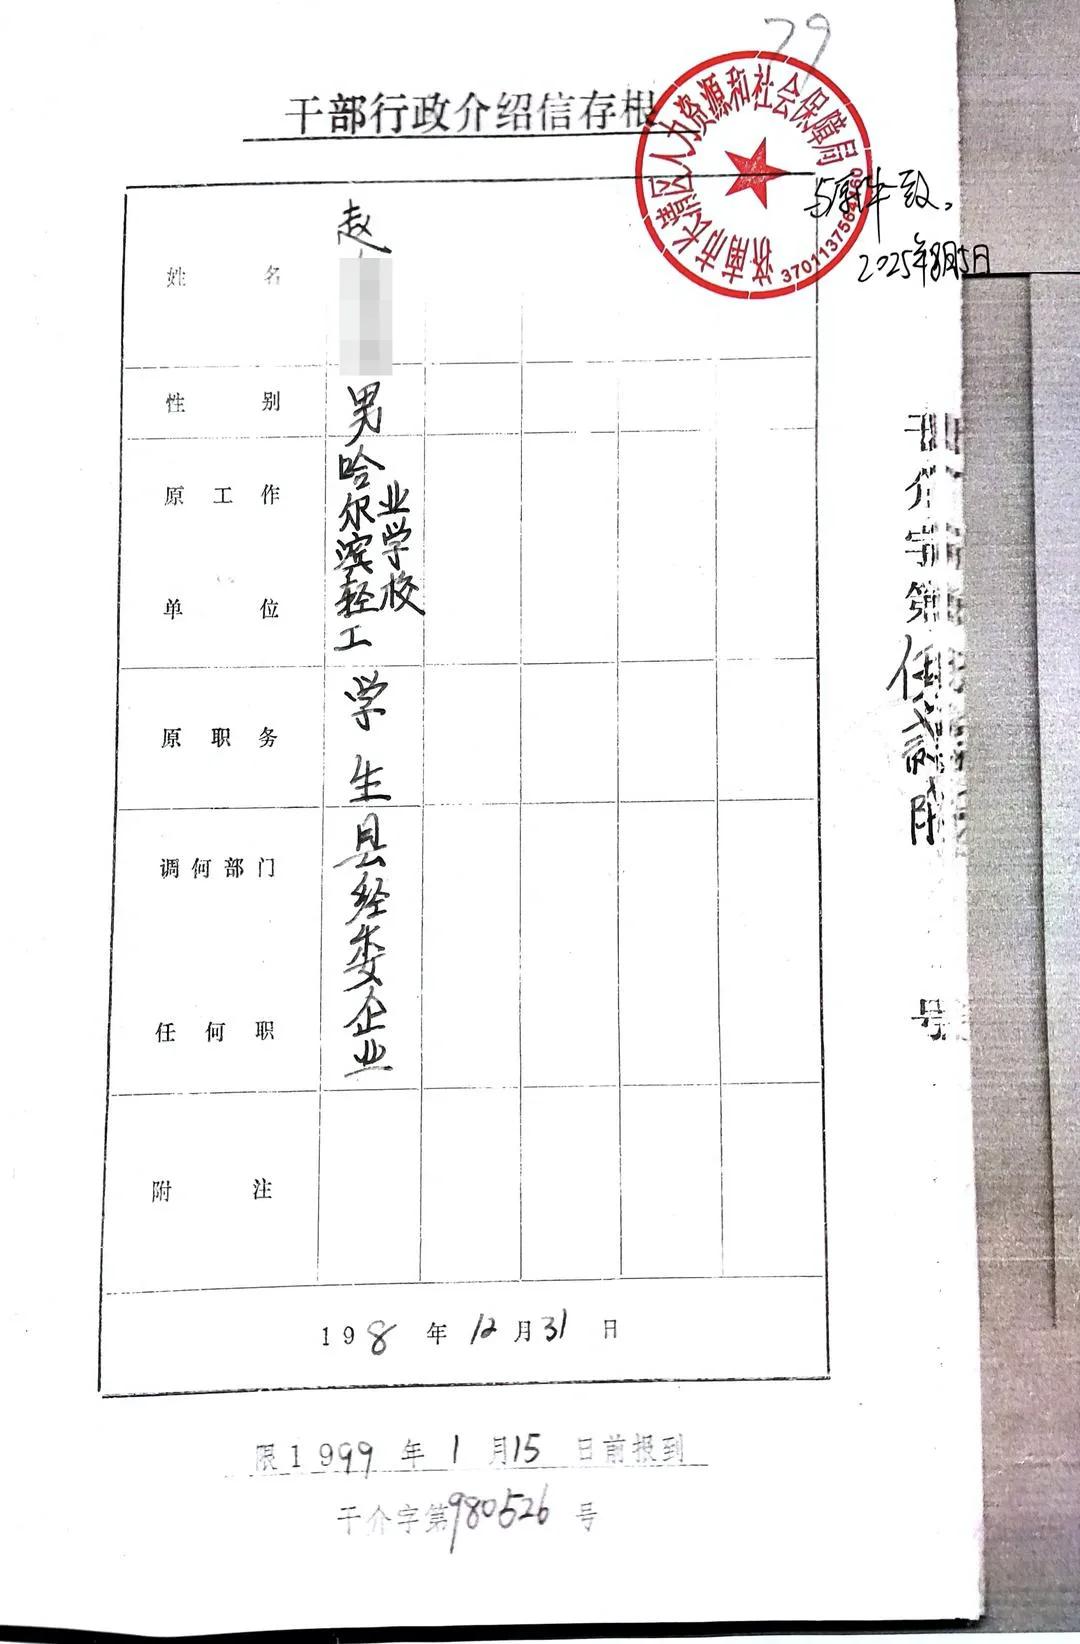 79
干部行政介绍信存根
济南市长清区人力资源和社会保障局
与原件一致。
2025年8月5日
姓名 赵
性别 男
原工作单位 哈尔滨轻工业学校
原职务 学生
调何部门任何职 县经委企业
附注
198年12月31日
限1999年1月15日前报到
干介字第980526号
干介字第伍贰陆号